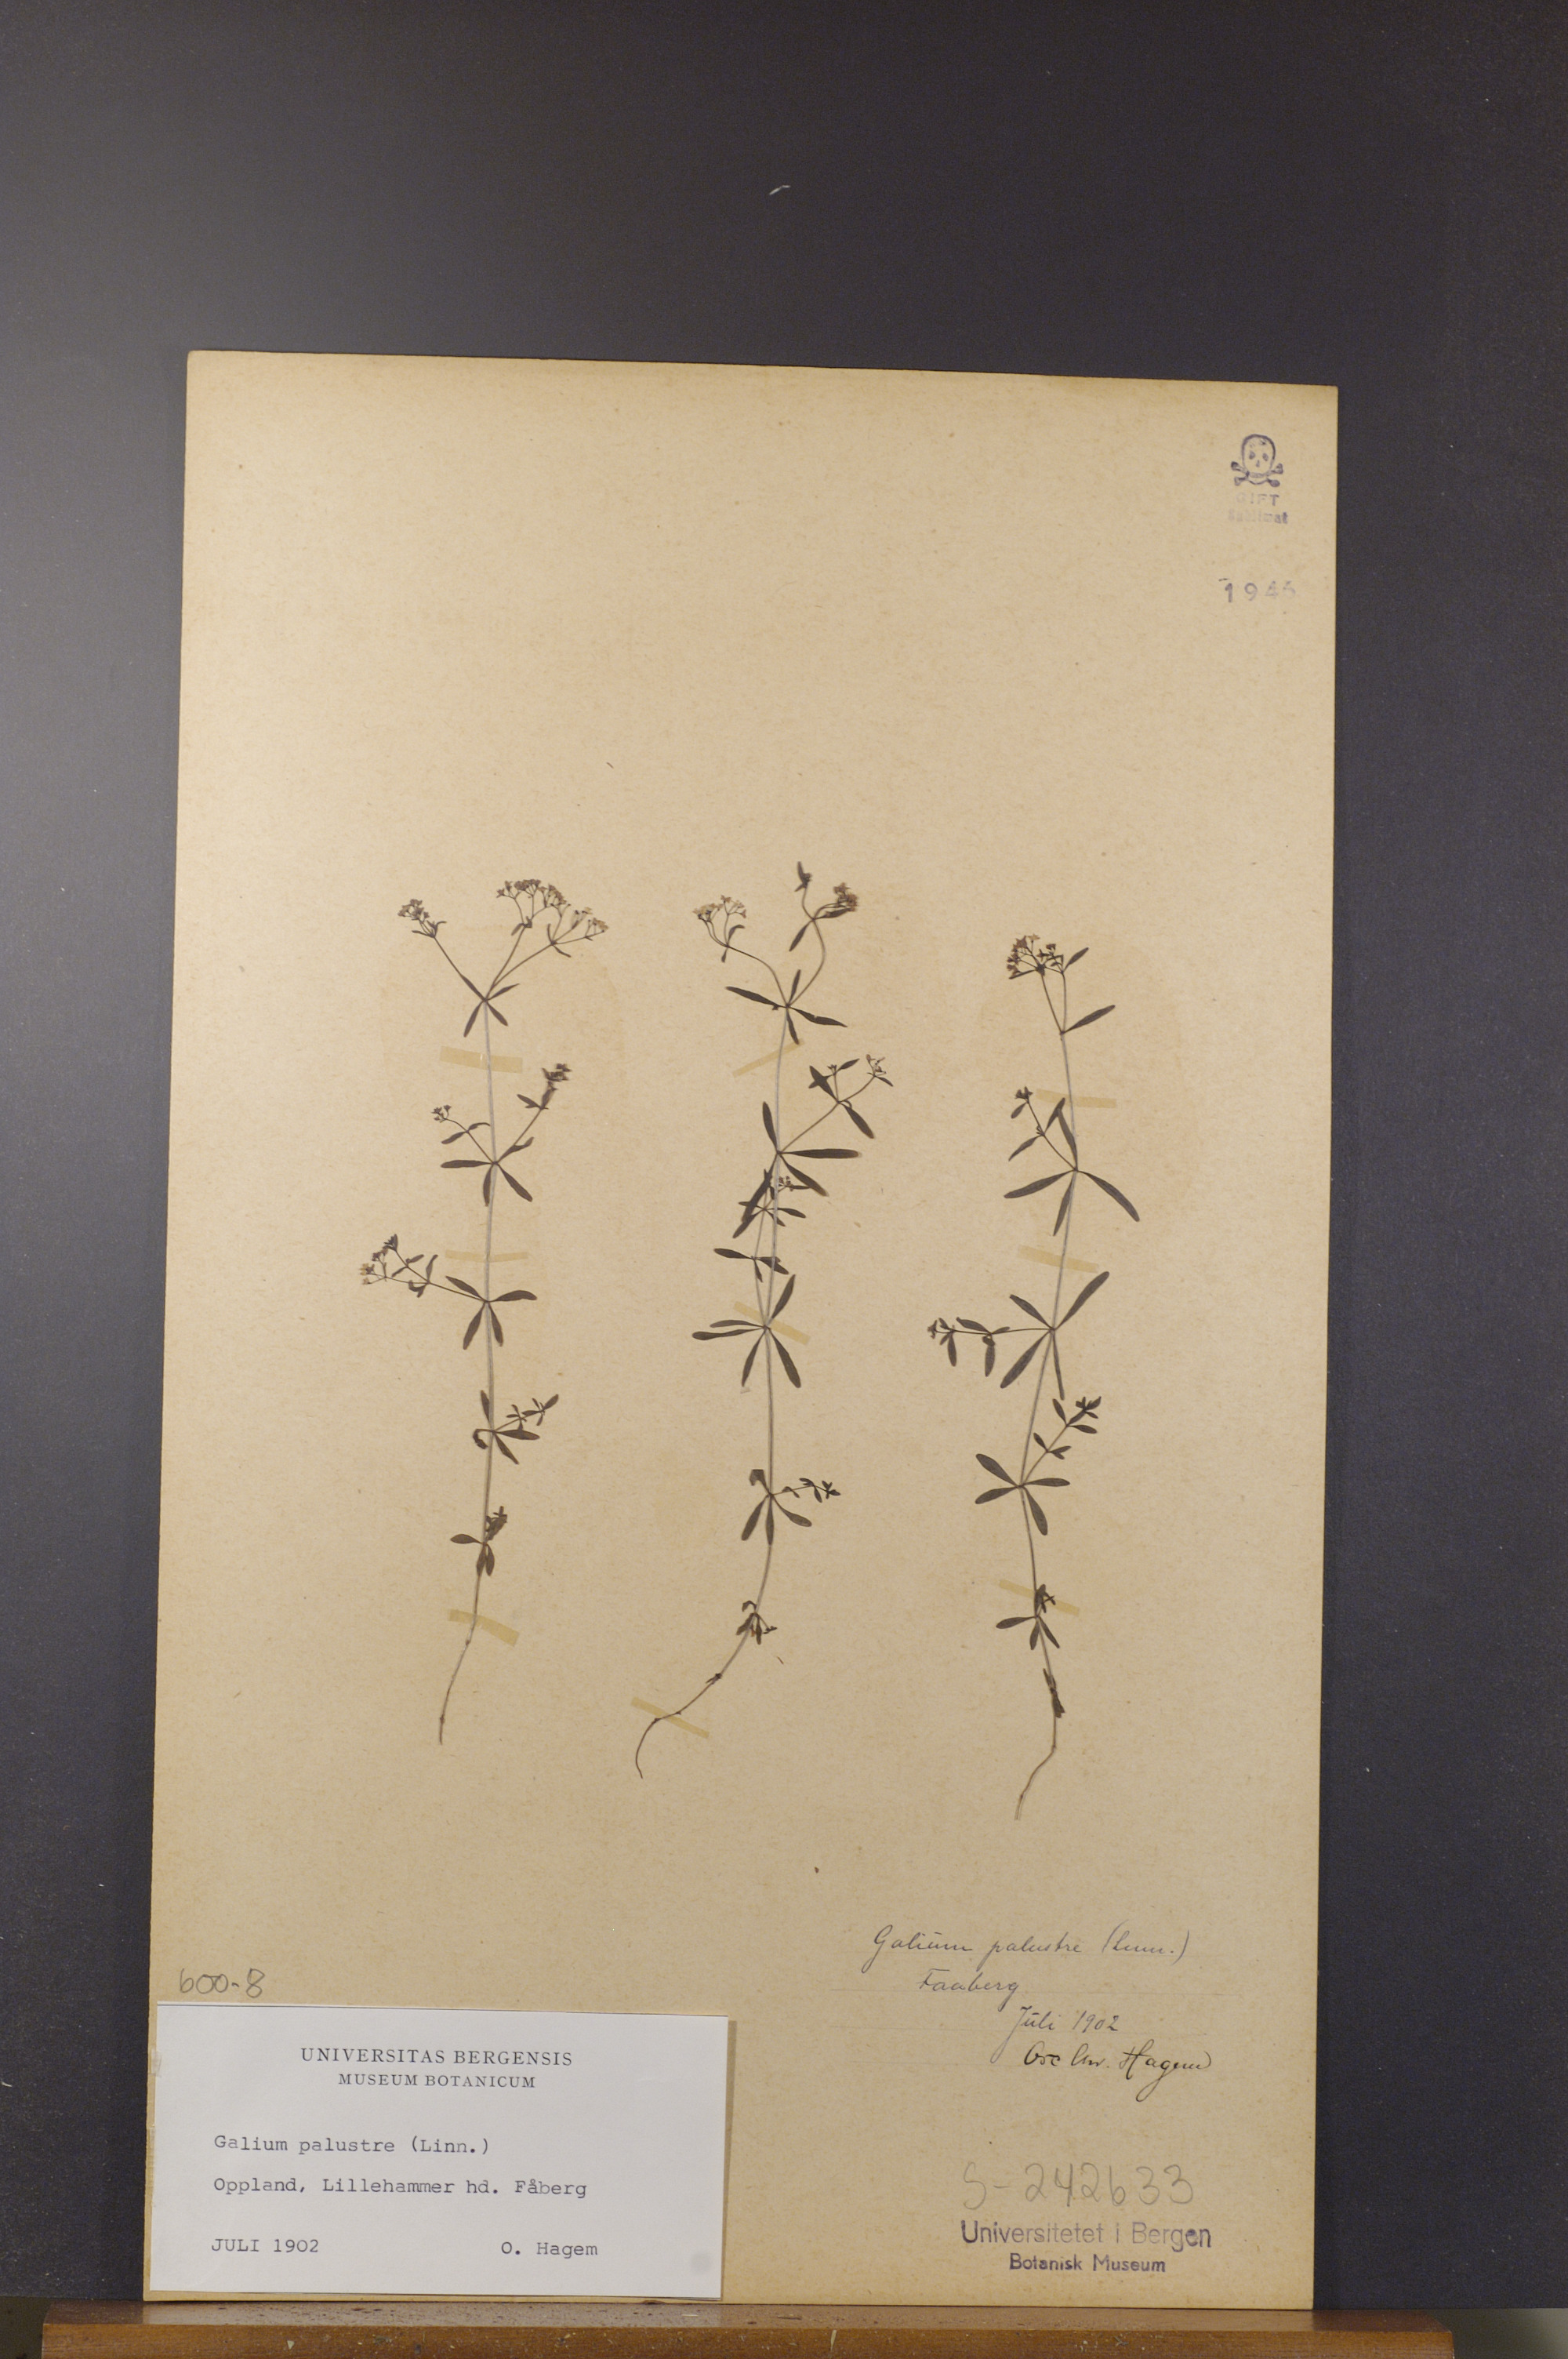 GIFT
Sublimat
Galium palustre (Linn.)
Faaberg
Juli 1902
Hagem
600-8
UNIVERSITAS BERGENSIS
MUSEUM BOTANICUM
Galium palustre (Linn.)
Oppland, Lillehammer hd. Fåberg
JULI 1902 O. Hagem
S-242633
Universitetet i Bergen
Botanisk Museum